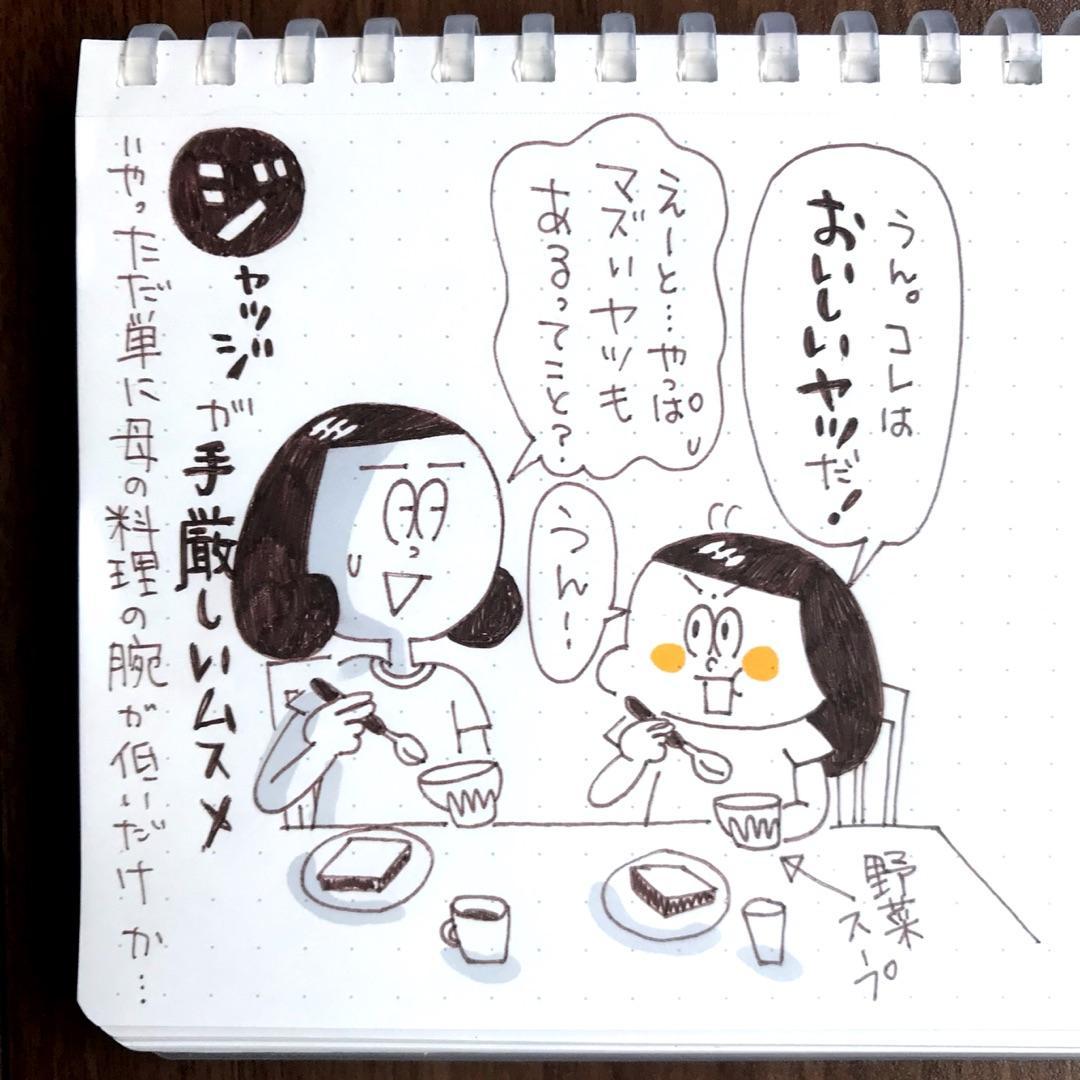 うん。コレは
おいしいヤツだ!
えーと…やっぱ
マズいヤツも
あるってこと?
うんー
ジャッジが手厳しいムスメ
いやただ単に母の料理の腕が低いだけか…
野菜
スープ